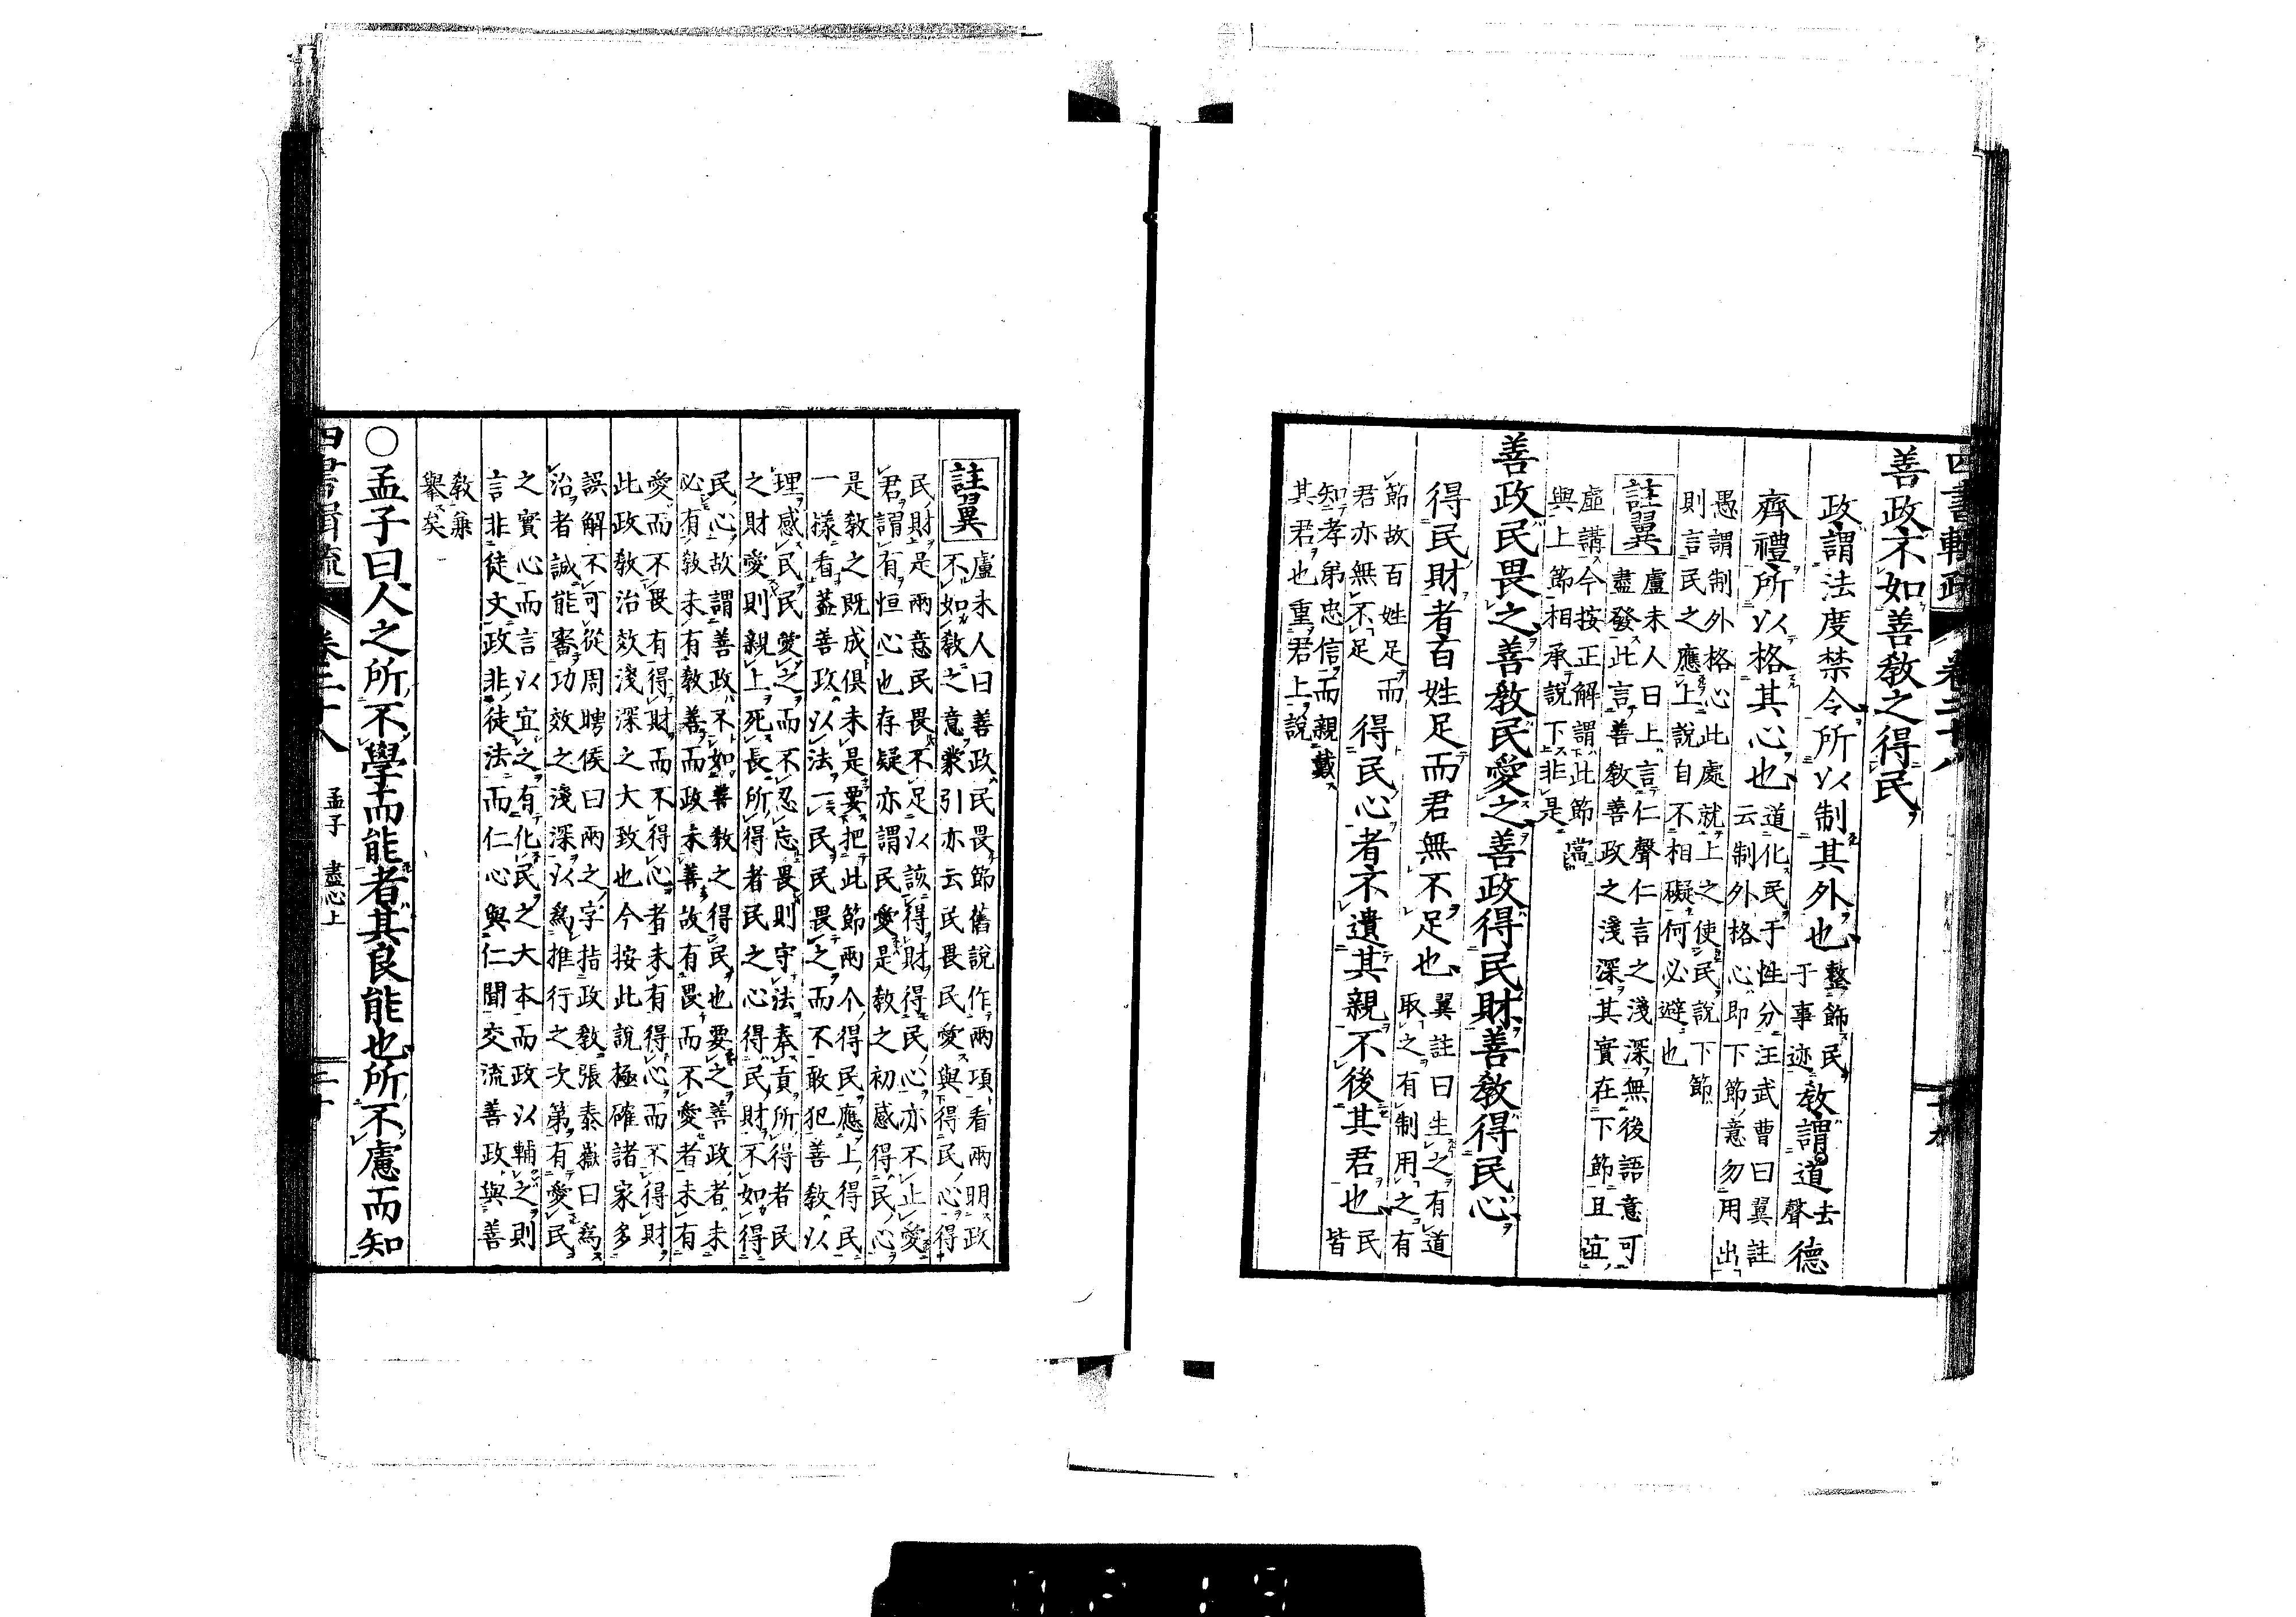 善政不如善教之得民
政謂法度禁令所以制其外也整飾民于事迹教謂道去聲德
齊禮所以格其心也道化民于性分汪武曹曰翼註云制外格心即下節意勿用出
愚謂制外格心此處就上之使民說下節則言民之應上說自不相礙何必避也
註翼
盧未人曰上言仁聲仁言之淺深無後語意可盡發此言善教善政之淺深其實在下節且宜
虛講今按正解謂此節當與上節相承說下非是
善政民畏之善教民愛之善政得民財善教得民心
得民財者百姓足而君無不足也翼註曰生之有道取之有制用之有
節故百姓足而君亦無不足得民心者不遺其親不後其君也民皆
知孝弟忠信而親戴其君也重君上說
註翼
盧未人曰善政民畏節舊說作兩項看兩明政
不如教之意蒙引亦云民畏民愛與得民心得
民財是兩意民畏不足以該得財得民心亦不止愛
君謂有恒心也存疑亦謂民愛是教之初感得民心
是教之既成俱未是要把此節兩个得民應上得民
一樣看蓋善政以法一民民畏之而不敢犯善教以
理感民民愛之而不忍忘畏則守法奉貢所得者民
之財愛則親上死長所得者民之心得民財不如得
民心故謂善政不如善教之得民也要之善政者未
必有教未有教善而政未善故有畏而不愛者未有
愛而不畏有得財而不得心者未有得心而不得財
此政教治效淺深之大致也今按此說極確諸家多
誤解不可從周聘侯曰兩之字指政教張泰嶽曰為
治者誠能審功效之淺深以為推行之次第有愛民
之實心而言以宣之有化民之大本而政以輔之則
言非徒文政非徒法而仁心與仁聞交流善政與善
教兼
舉矣
○孟子曰人之所不學而能者其良能也所不慮而知
孟子 盡心上